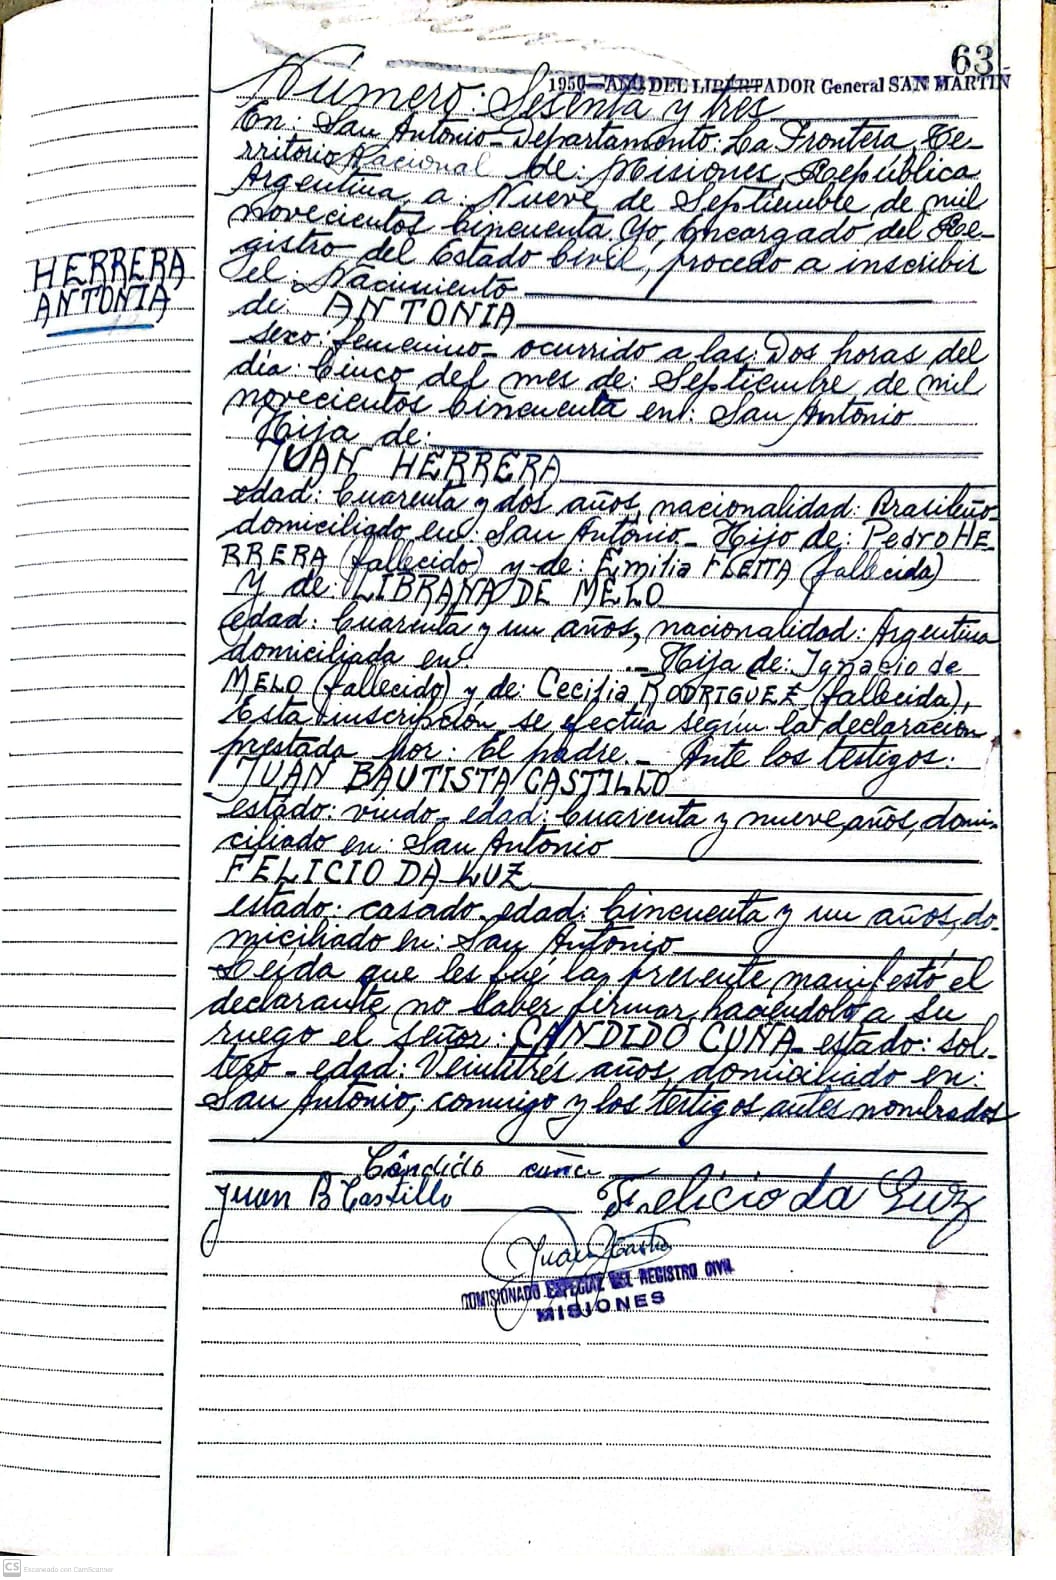 63
1950—AÑO DEL LIBERTADOR General SAN MARTIN
Número: Sesenta y tres
En: San Antonio-Departamento: La Frontera, Te-
rritorio Nacional de: Misiones, República
Argentina, a Nueve de Septiembre de mil
novecientos Cincuenta. Yo, Encargado del Re-
gistro del Estado Civil, procedo a inscribir
el: Nacimiento
HERRERA
ANTONIA
de: ANTONIA
sexo: femenino- ocurrido a las: Dos horas del
día: Cinco del mes de: Septiembre de mil
novecientos Cincuenta en: San Antonio
Hija de:
JUAN HERRERA
edad: Cuarenta y dos años, nacionalidad: Brasileño-
domiciliado en: San Antonio.- Hijo de: Pedro HE-
RRERA (fallecido) y de: Emilia FLEITA (fallecida)
Y de: LIBRANA DE MELO
edad: Cuarenta y un años, nacionalidad: Argentina
domiciliada en: .- Hija de: Ignacio de
MELO (fallecido) y de: Cecilia RODRIGUEZ (fallecida),
Esta inscripción se efectúa según la declaración
prestada por: El padre.- Ante los testigos:
JUAN BAUTISTA CASTILLO
estado: viudo- edad: Cuarenta y nueve años, domi-
ciliado en: San Antonio
FELICIO DA LUZ
estado: casado- edad: Cincuenta y un años, do-
miciliado en: San Antonio
Leída que les fué la presente manifestó el
declarante no saber firmar haciéndolo a su
ruego el señor: CANDIDO CUÑA- estado: sol-
tero- edad: Veintitrés años, domiciliado en:
San Antonio; conmigo y los testigos antes nombrados
Cándido cuña
Juan B Castillo Felicio da Luz
COMISIONADO ESPECIAL DEL REGISTRO CIVIL
MISIONES
CS Escaneado con CamScanner